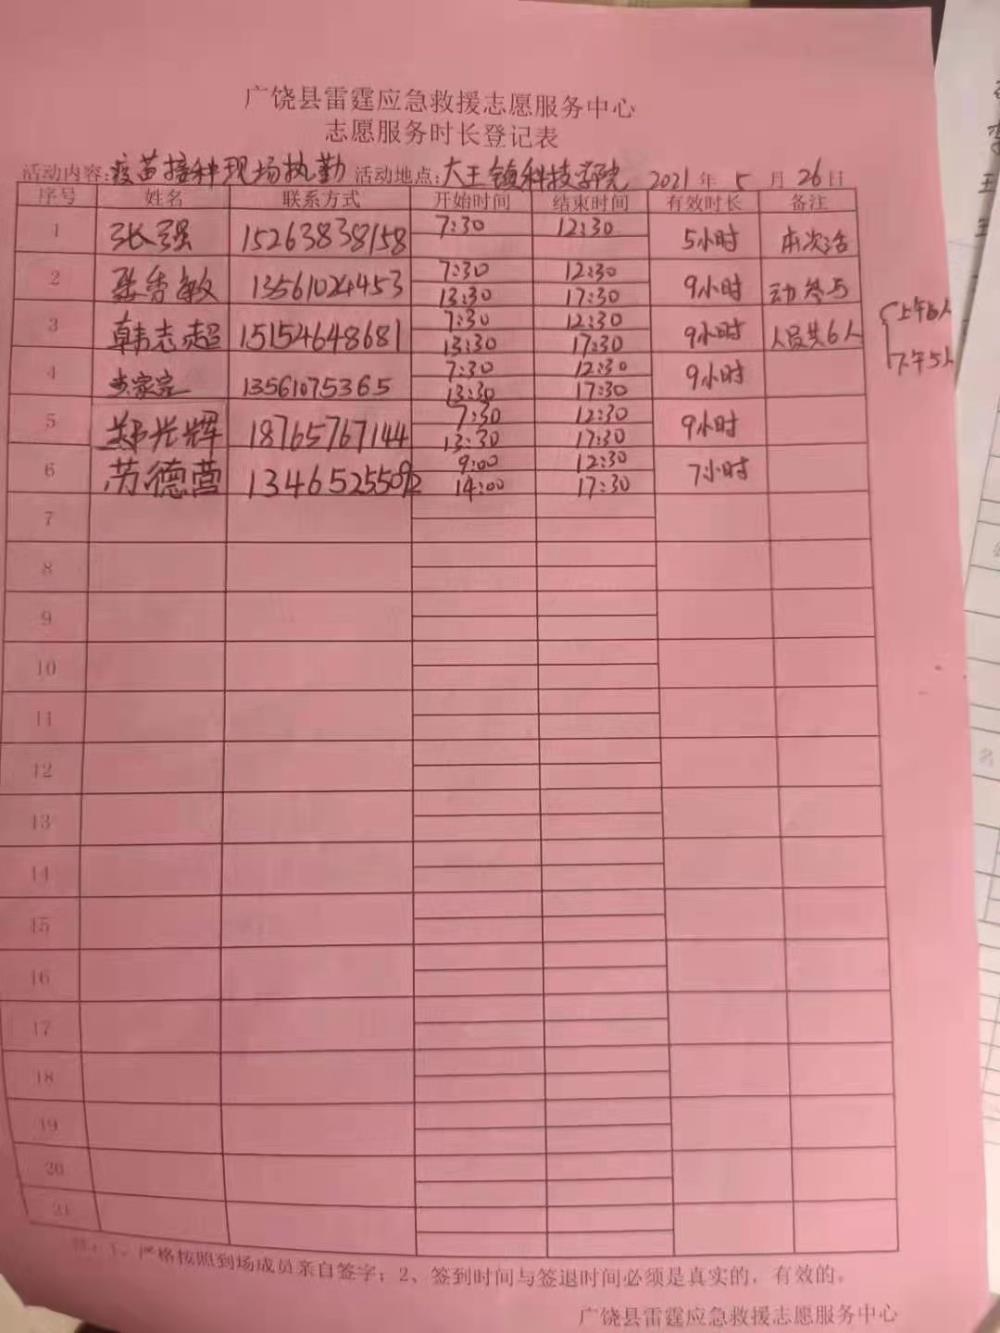 广饶县雷霆应急救援志愿服务中心
志愿服务时长登记表
活动内容:疫苗接种现场执勤 活动地点:大王镇科技学院 2021年5月26日
序号 姓名 联系方式 开始时间 结束时间 有效时长 备注
1 张强 15263838158 7:30 12:30 5小时 本次活
2 张秀敏 13561024453 7:30 12:30 9小时 动参与
13:30 17:30
3 韩志超 15154648681 7:30 12:30 9小时 人员共6人
13:30 17:30
上午6人
下午5人
4 13561075365 7:30 12:30 9小时
13:30 17:30
5 郑光辉 18765767144 7:30 12:30 9小时
13:30 17:30
6 苏德营 13465255092 9:00 12:30 7小时
14:00 17:30
7
8
9
10
11
12
13
14
15
16
17
18
19
20
21
注:1、严格按照到场成员亲自签字;2、签到时间与签退时间必须是真实的,有效的。
广饶县雷霆应急救援志愿服务中心